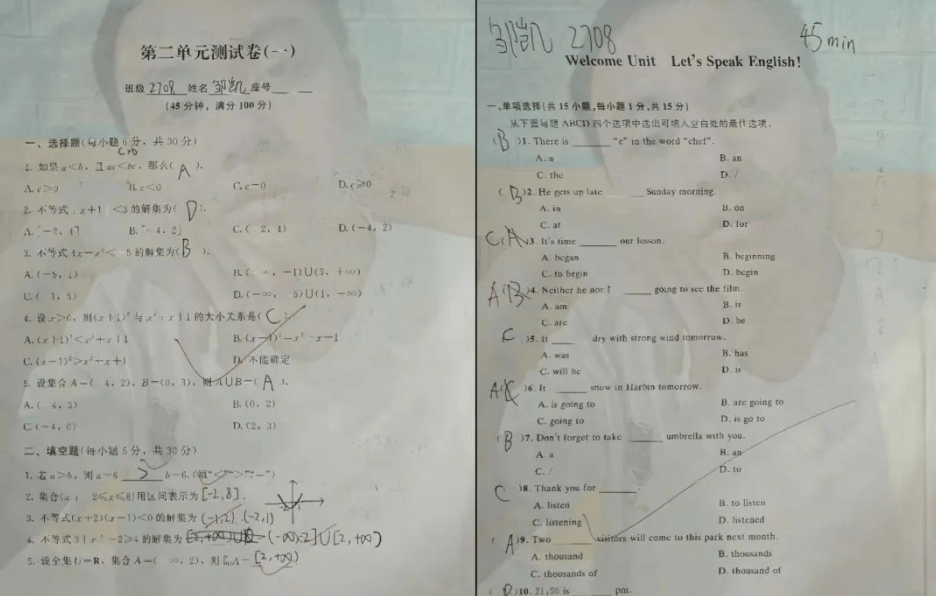 第二单元测试卷(一)
班级 2708 姓名 邹凯 座号
(45分钟, 满分100分)
一、选择题(每小题6分, 共30分)
c>0
1. 如果a<b, 且ac<bc, 那么( A ).
A. c>0 B. c<0 C. c=0 D. c≥0
2. 不等式 x+1 <3的解集为( D ).
C. ( 2, 4) D. (-4, 2)
3. 不等式4x-x²< 5的解集为( B ).
A. (-5, 1) B. ( , -1)∪(5, +∞)
C. ( 1, 5) D. (-∞, 5)∪(1, +∞)
的大小关系是( C )
D. 不能确定
5. 设集合A=( 4, 2), B=(0, 3), 则A∪B=( A ).
A. ( 4, 3) B. (0, 2)
C. (-4, 0) D. (2, 3)
1. 若a>b, 则a-6 > b-6. (填"<"">""=")
2. 集合 用区间表示为 [-2,8].
3. 不等式(x+2)(x-1)<0的解集为 (-1,2) (-2,1)
4. 不等式 的解集为 (-∞,-2]∪[2,+∞)
5. 设全集U=R, 集合A=( ∞, 2), 则∁ᵤA= [2,+∞)
邹凯 2708 45min
Welcome Unit Let's Speak English!
一、单项选择(共15小题,每小题1分,共15分)
从下面每题ABCD四个选项中选出可填入空白处的最佳选项。
( B )1. There is ______ "e" in the word "chef".
A. a B. an
C. the D. /
( B )2. He gets up late ______ Sunday morning.
A. in B. on
C. at D. for
C A )3. It's time ______ our lesson.
A. began B. beginning
C. to begin D. begin
A B )4. Neither he nor I ______ going to see the film.
A. am B. is
C. are D. be
C )5. It ______ dry with strong wind tomorrow.
A. was B. has
C. will be D. is
A C )6. It ______ snow in Harbin tomorrow.
A. is going to B. are going to
C. going to D. is go to
( B )7. Don't forget to take ______ umbrella with you.
A. a B. an
C. / D. to
C )8. Thank you for ______.
A. listen B. to listen
C. listening D. listened
( A )9. Two ______ visitors will come to this park next month.
A. thousand B. thousands
C. thousands of D. thousand of
( D )10. 21:50 is ______ pm.